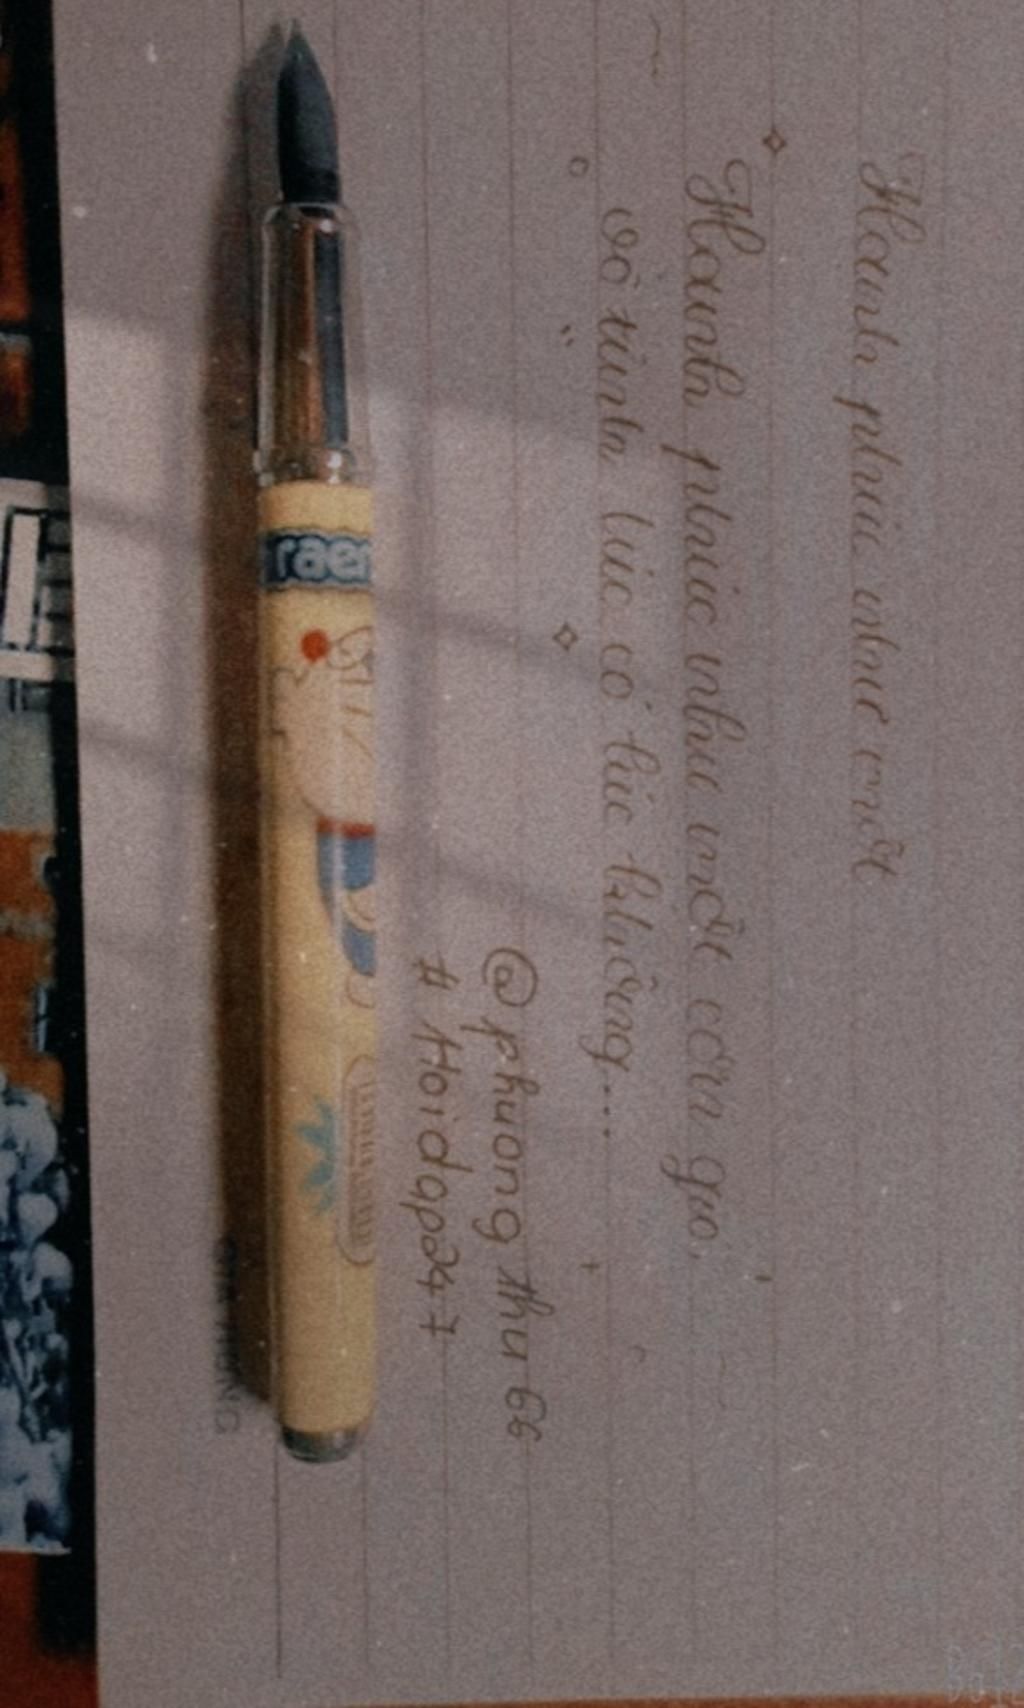 Hạnh phúc như một
Hạnh phúc như một cơn gió,
vô tình lúc có lúc không...
@phuong thu 66
# Hoidap247
raen